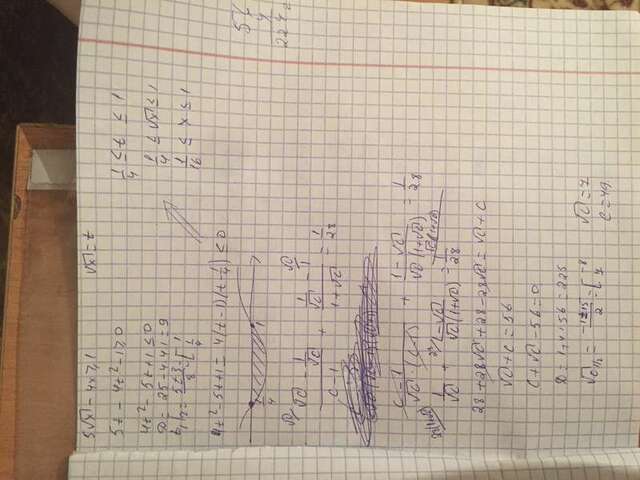 5√x - 4x ≥ 1
√x = t
5t - 4t² - 1 ≥ 0
4t² - 5t + 1 ≤ 0
D = 25 - 4·4·1 = 9
t₁,t₂ = (5±3)/8 = [1; 1/4
4t² - 5t + 1 = 4(t - 1)(t - 1/4) ≤ 0
1/4 1
1/4 ≤ t ≤ 1
1/4 ≤ √x ≤ 1
1/16 ≤ x ≤ 1
56
4
224
(√c - 1/√c)/(c - 1) + (1/√c - 1)/(1 + √c) = 1/28
(c - 1)/(√c · (c - 1)) + (1 - √c)/(√c (1 + √c)) = 1/28
1/√c + (1 - √c)/(√c (1 + √c)) = 1/28
28 + 28√c + 28 - 28√c = √c + c
√c + c = 56
c + √c - 56 = 0
D = 1 + 4·56 = 225
√c₁/₂ = (-1±15)/2 = [-8; 7
√c = 7
c = 49